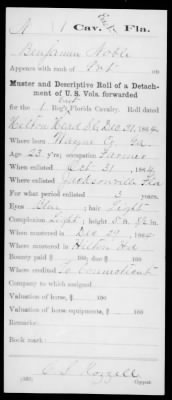 N 1 Cav. East Fla.
Benjamin Noble
Appears with rank of Pvt on
Muster and Descriptive Roll of a Detachment of U. S. Vols. forwarded
for the 1 Reg't East Florida Cavalry. Roll dated
Hilton Head S.C. Dec 31, 1864.
Where born Wayne Co. Ga
Age 23 y'rs; occupation Farmer
When enlisted Oct 31, 1864.
Where enlisted Jacksonville Fla
For what period enlisted 3 years.
Eyes Blue; hair Light
Complexion Light; height 5 ft. 8½ in.
When mustered in Dec 29, 1864.
Where mustered in Hilton Hd
Bounty paid $ 100; due $ 100
Where credited to Connecticut
Company to which assigned
Valuation of horse, $ 100
Valuation of horse equipments, $ 100
Remarks:
Book mark:
Copyist.